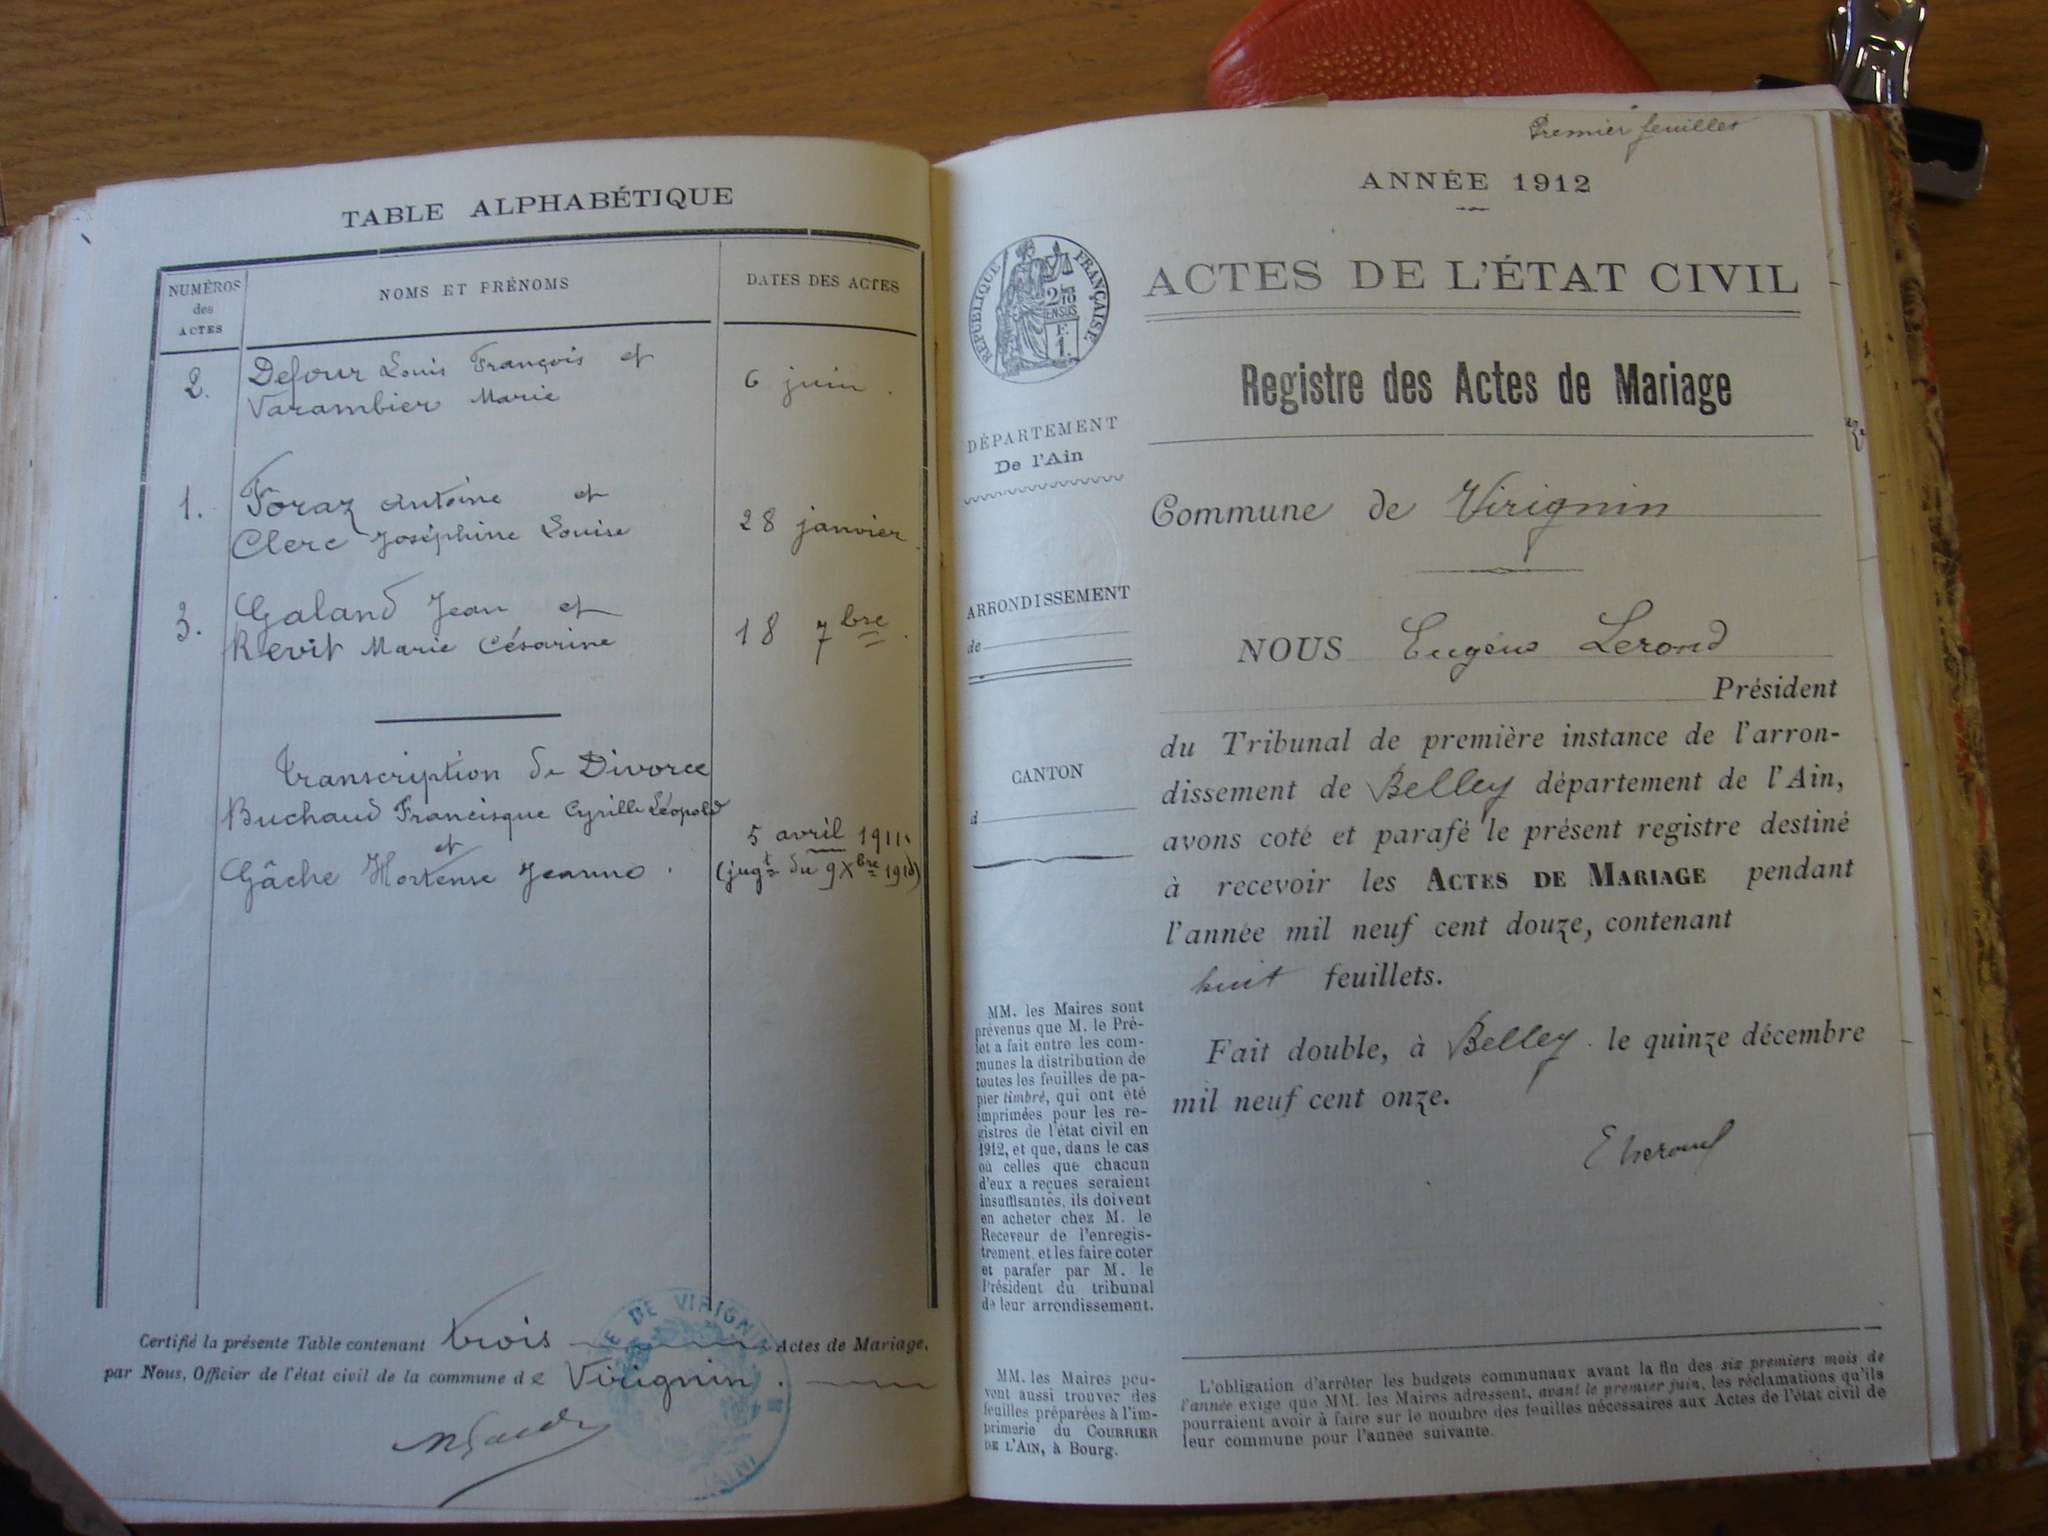 TABLE ALPHABÉTIQUE
NUMÉROS
des
ACTES
NOMS ET PRÉNOMS
DATES DES ACTES
2. Defour Louis François et
Varambier Marie
6 juin.
1. Foraz Antoine et
Clerc Joséphine Louise
28 janvier.
3. Galand Jean et
Revit Marie Césarine
18 7bre.
Transcription de Divorce
Buchaud Francisque Cyrille Léopold
et
Gâche Hortense Jeanne.
5 avril 1911.
(jugt du 9 Xbre 1910)
Certifié la présente Table contenant trois Actes de Mariage,
par Nous, Officier de l'état civil de la commune de Virignin.
DE VIRIGNIN
(AIN)
Premier feuillet
ANNÉE 1912
RÉPUBLIQUE FRANÇAISE
ACTES DE L'ÉTAT CIVIL
Registre des Actes de Mariage
DÉPARTEMENT
De l'Ain
ARRONDISSEMENT
de
CANTON
d
Commune de Virignin
NOUS Eugène Lerond
Président
du Tribunal de première instance de l'arron-
dissement de Belley département de l'Ain,
avons coté et parafé le présent registre destiné
à recevoir les ACTES DE MARIAGE pendant
l'année mil neuf cent douze, contenant
huit feuillets.
Fait double, à Belley. le quinze décembre
mil neuf cent onze.
E Lerond
MM. les Maires sont
prévenus que M. le Pré-
fet a fait entre les com-
munes la distribution de
toutes les feuilles de pa-
pier timbré, qui ont été
imprimées pour les re-
gistres de l'état civil en
1912, et que, dans le cas
où celles que chacun
d'eux a reçues seraient
insuffisantes, ils doivent
en acheter chez M. le
Receveur de l'enregis-
trement, et les faire coter
et parafer par M. le
Président du tribunal
de leur arrondissement.
MM. les Maires peu-
vent aussi trouver des
feuilles préparées à l'im-
primerie du COURRIER
DE L'AIN, à Bourg.
L'obligation d'arrêter les budgets communaux avant la fin des six premiers mois de
l'année exige que MM. les Maires adressent, avant le premier juin, les réclamations qu'ils
pourraient avoir à faire sur le nombre des feuilles nécessaires aux Actes de l'état civil de
leur commune pour l'année suivante.